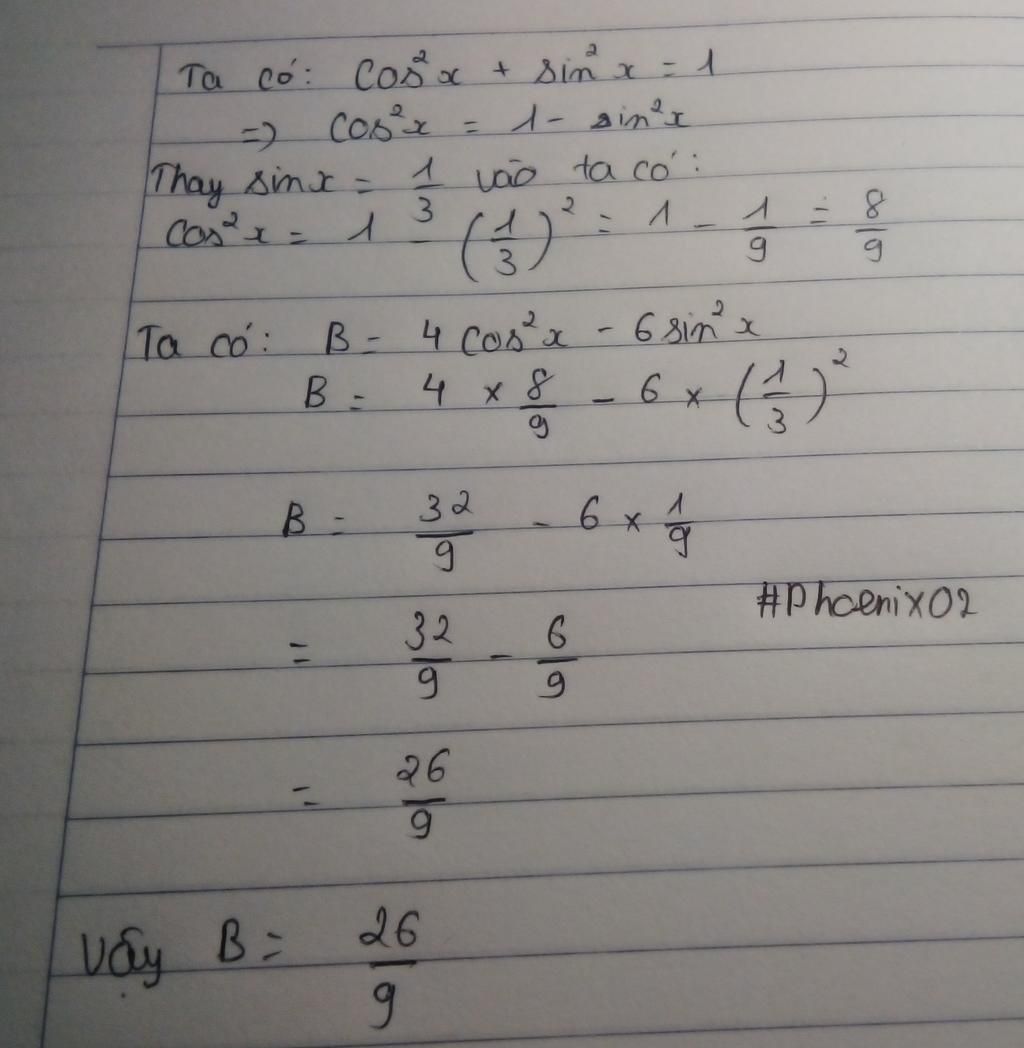 Ta có: cos²x + sin²x = 1
=> cos²x = 1 - sin²x
Thay sinx = 1/3 vào ta có:
cos²x = 1 - (1/3)² = 1 - 1/9 = 8/9
Ta có: B = 4cos²x - 6sin²x
B = 4 × 8/9 - 6 × (1/3)²
B = 32/9 - 6 × 1/9
#Phoenix02
= 32/9 - 6/9
= 26/9
Vậy B = 26/9